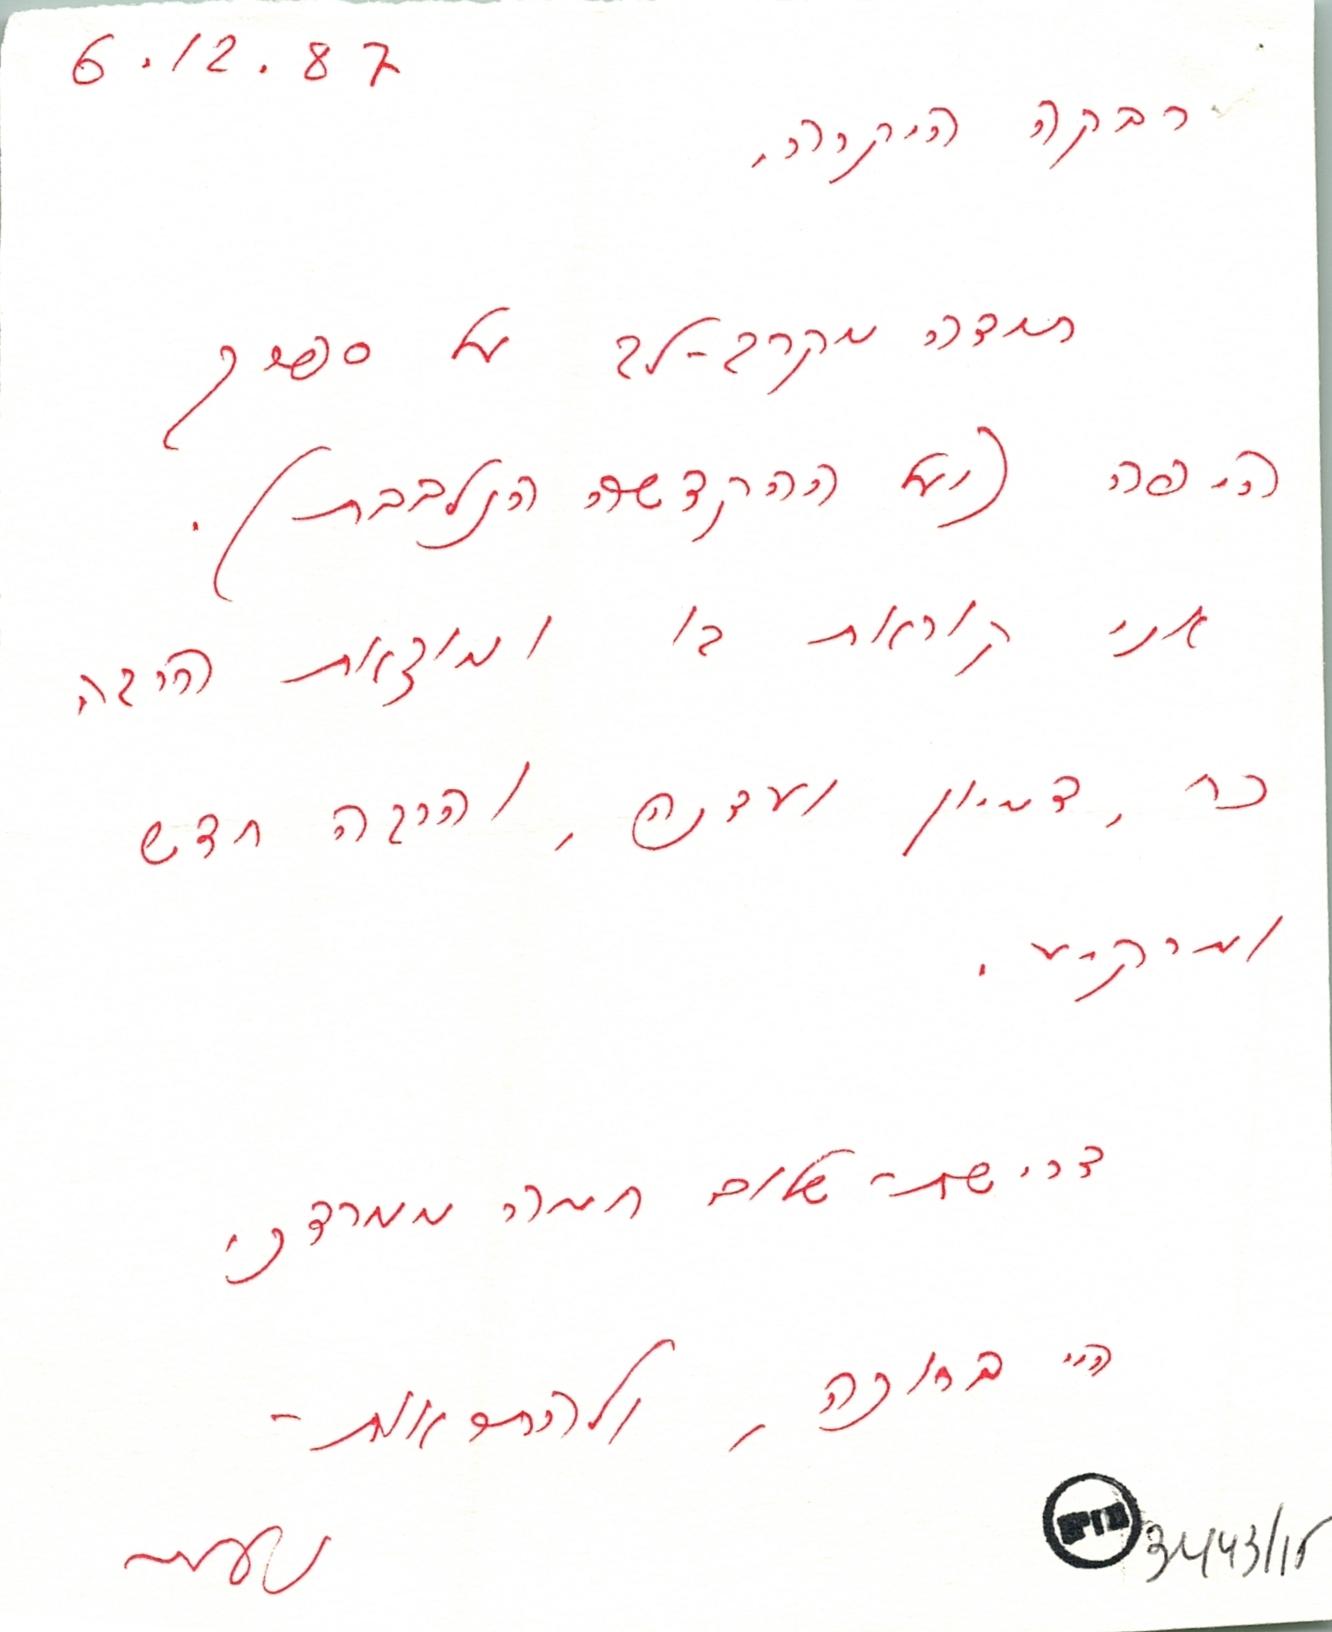 6.12.87
רבקה היקרה,
תודה מקרב-לב על ספרך
היפה (ועל ההקדשה הנלבבת).
אני קוראת בו ומוצאת הרבה
כח, דמיון ועדנה, והרבה חדש
ומרקיע.
דרישת-שלום חמה ממרדכי
היי ברוכה, ולהתראות-
3443/15